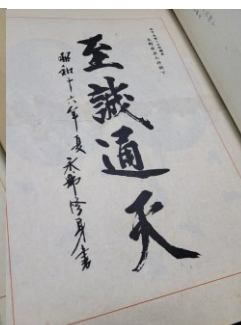 至誠通天
昭和十六年夏 永野修身書